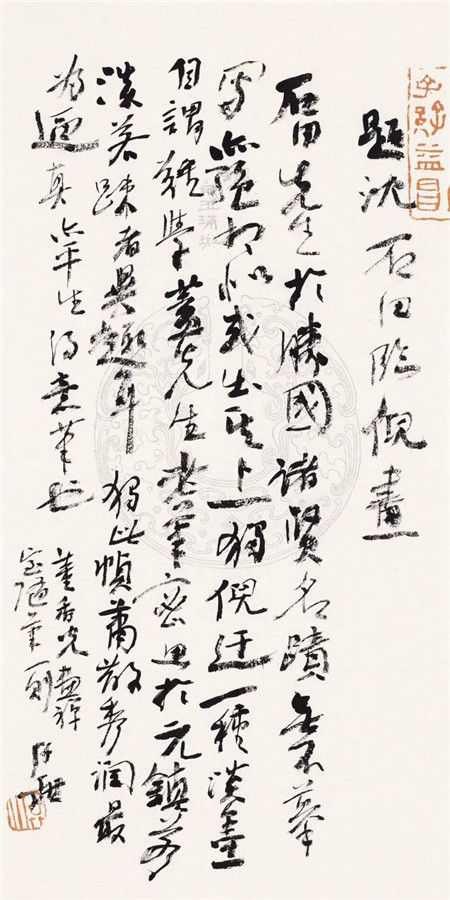 題沈石田臨倪畫
石田先生於勝國諸賢名蹟無不摹
寫亦絕相似或出其上獨倪迂一種淡畫
自謂難學蓋先生老筆密思於元鎮若
淡若疎者異趣耳獨此幀蕭散秀潤最
為逼真亦平生得意筆也
董香光畫禪
室隨筆一則